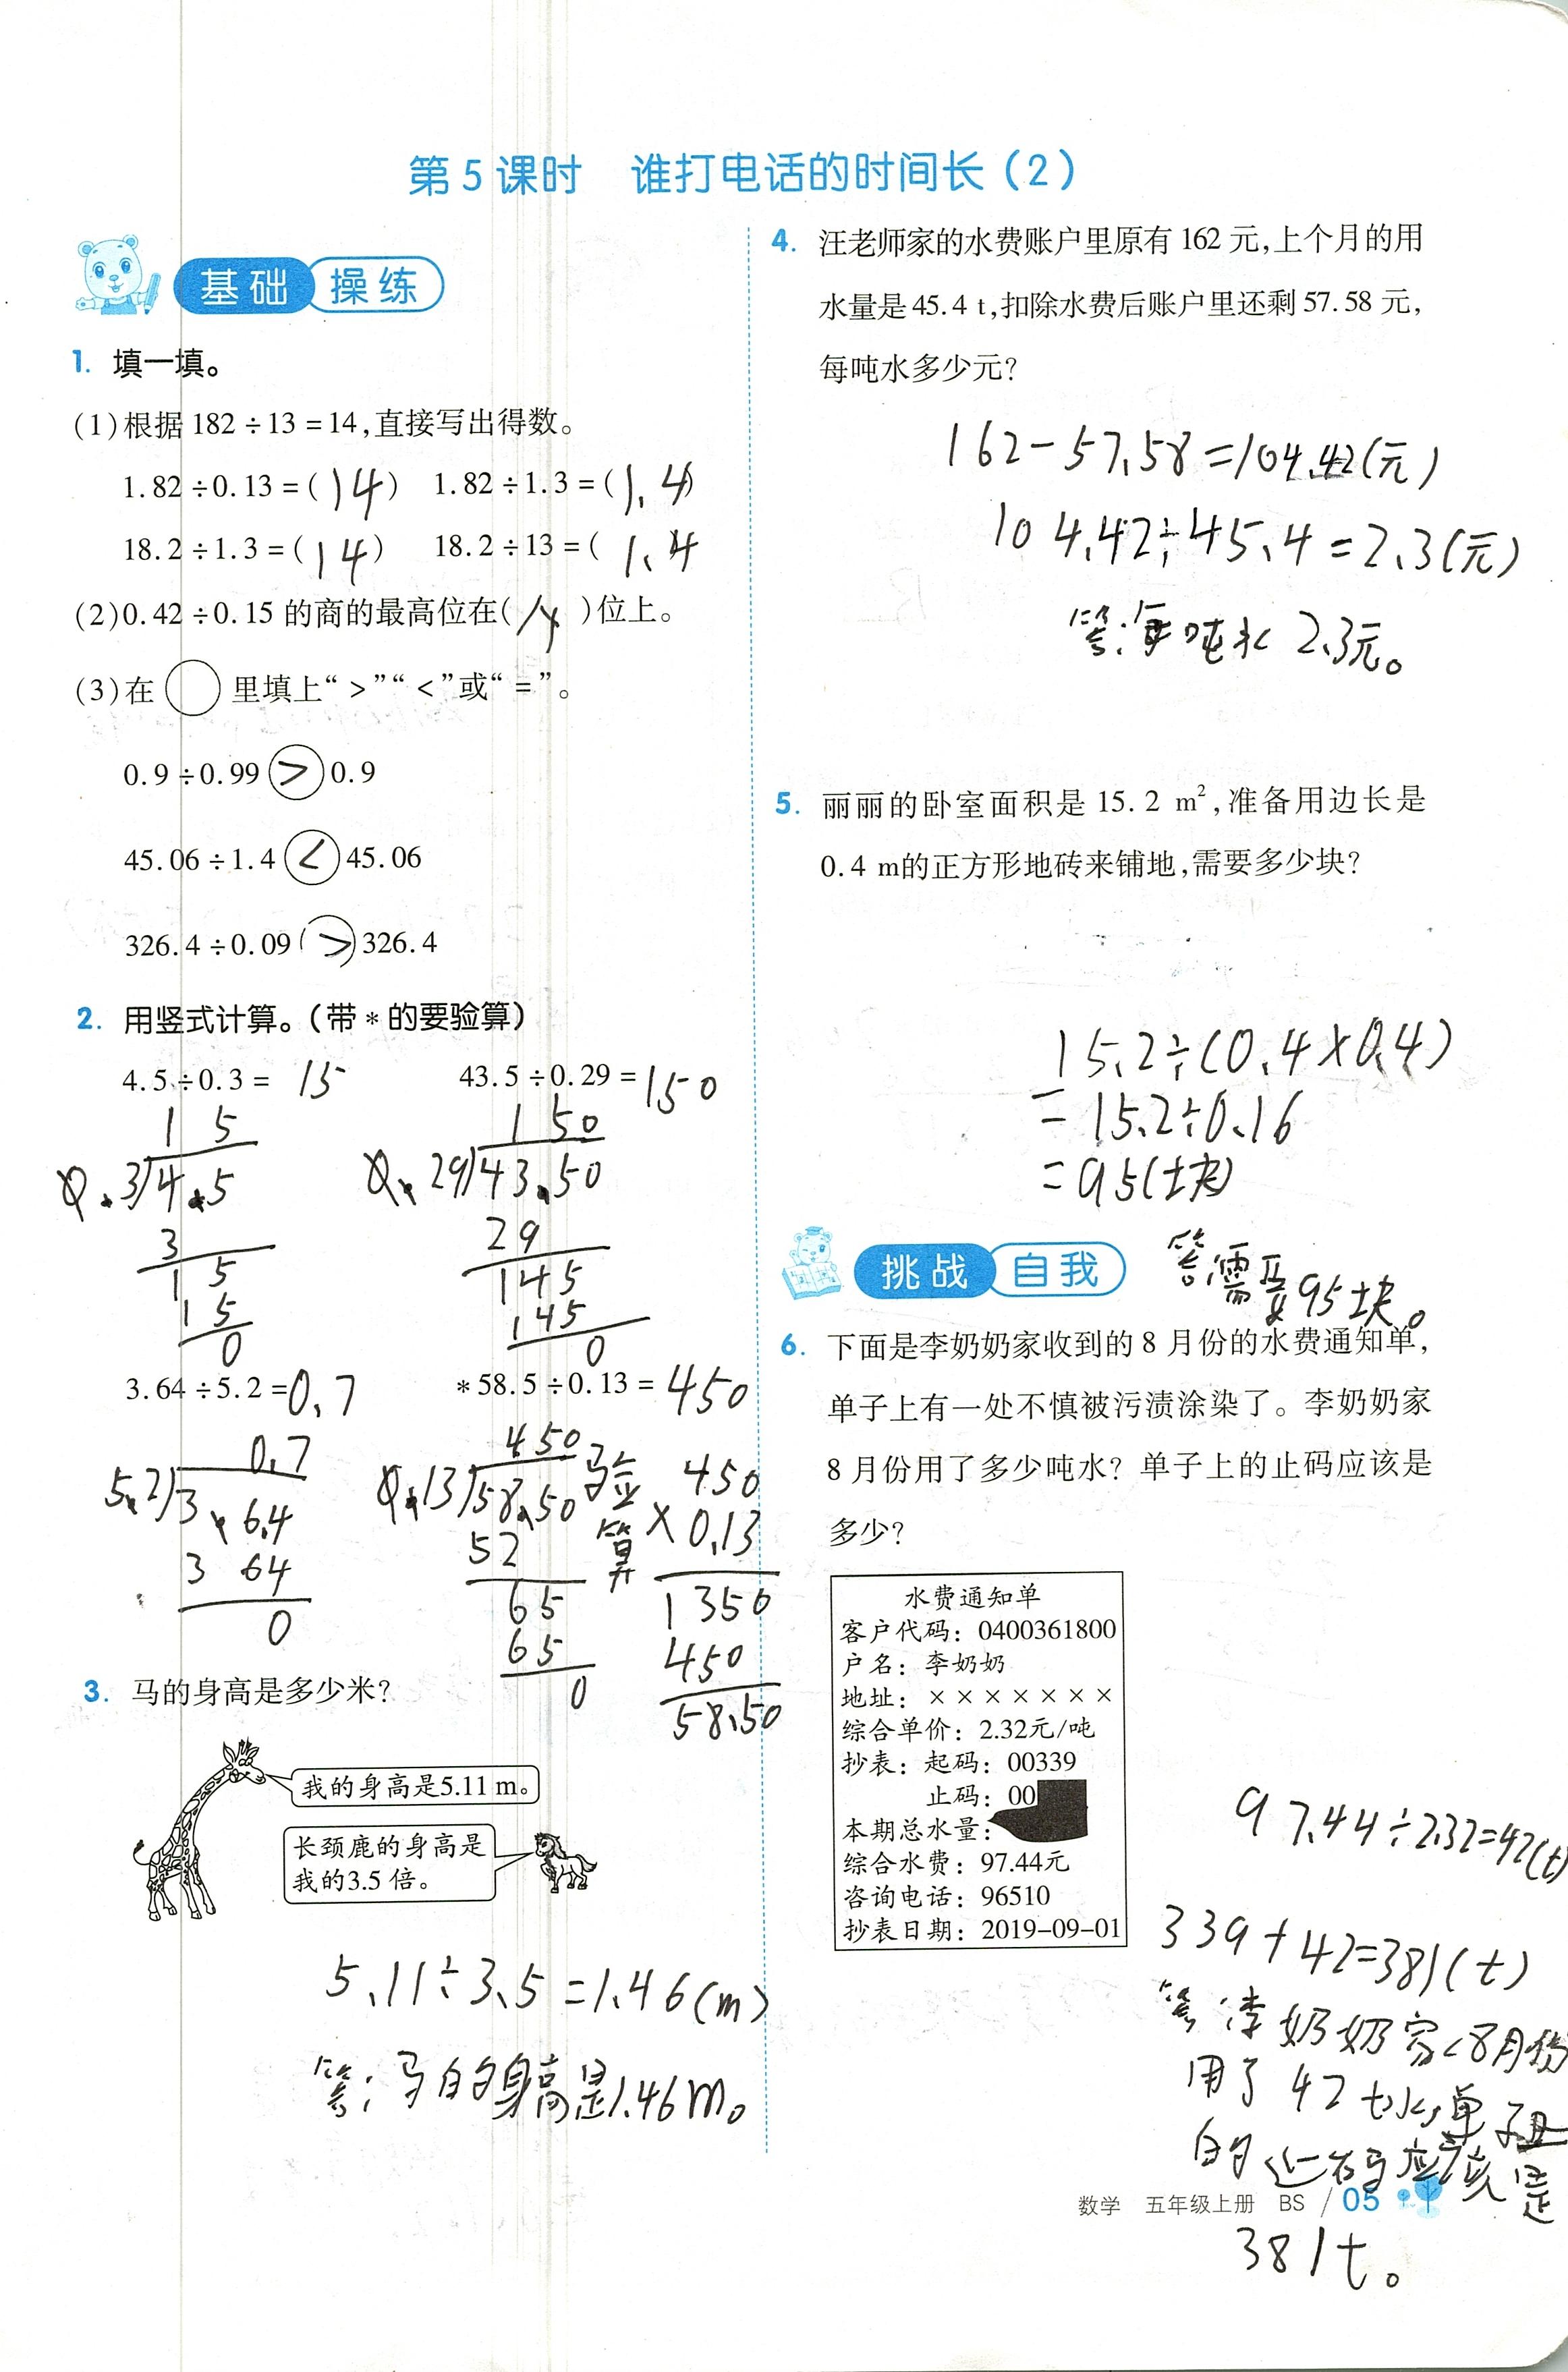 第5课时 谁打电话的时间长(2)
基础 操练
1. 填一填。
(1)根据182÷13=14,直接写出得数。
1.82÷0.13=(14) 1.82÷1.3=(1.4)
18.2÷1.3=(14) 18.2÷13=( 1.4
(2)0.42÷0.15的商的最高位在( )位上。
(3)在○里填上“>”“<”或“=”。
0.9÷0.99 > 0.9
45.06÷1.4 < 45.06
326.4÷0.09 > 326.4
2. 用竖式计算。(带*的要验算)
4.5÷0.3= 15 43.5÷0.29=150
15
0.3 4.5
3
15
15
0
150
0.29 43.50
29
145
145
0
3.64÷5.2=0.7 *58.5÷0.13=450
0.7
5.2 3.64
3 64
0
450
0.13 58.50
52
65
65
0
验算
450
×0.13
1350
450
58.50
3. 马的身高是多少米?
我的身高是5.11 m。
长颈鹿的身高是
我的3.5倍。
5.11÷3.5=1.46(m)
答:马的身高是1.46m。
4. 汪老师家的水费账户里原有162元,上个月的用
水量是45.4 t,扣除水费后账户里还剩57.58元,
每吨水多少元?
162-57.58=104.42(元)
104.42÷45.4=2.3(元)
答:每吨水2.3元。
5. 丽丽的卧室面积是15.2 m²,准备用边长是
0.4 m的正方形地砖来铺地,需要多少块?
15.2÷(0.4×0.4)
=15.2÷0.16
=95(块)
答:需要95块。
挑战 自我
6. 下面是李奶奶家收到的8月份的水费通知单,
单子上有一处不慎被污渍涂染了。李奶奶家
8月份用了多少吨水?单子上的止码应该是
多少?
水费通知单
客户代码:0400361800
户名:李奶奶
地址:×××××××
综合单价:2.32元/吨
抄表:起码:00339
止码:00
本期总水量:
综合水费:97.44元
咨询电话:96510
抄表日期:2019-09-01
97.44÷2.32=42(t)
339+42=381(t)
答:李奶奶家8月份
用了42t水,单子上
的止码应该是
381t。
数学 五年级上册 BS / 05